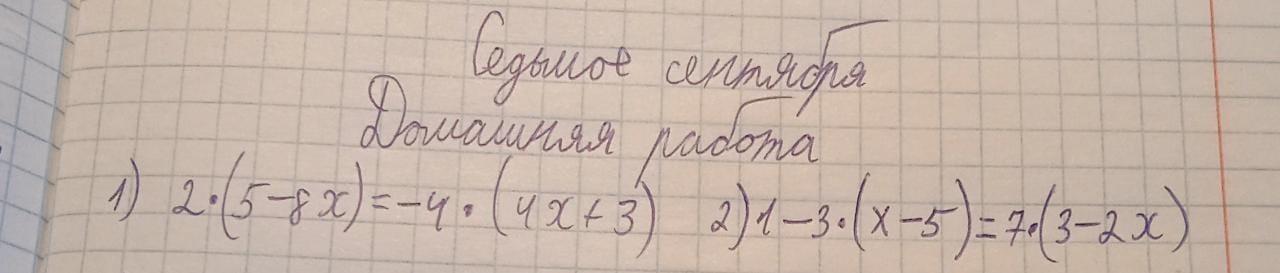 Седьмое сентября
Домашняя работа
1) 2·(5-8x)=-4·(4x+3) 2) 1-3·(x-5)=7·(3-2x)